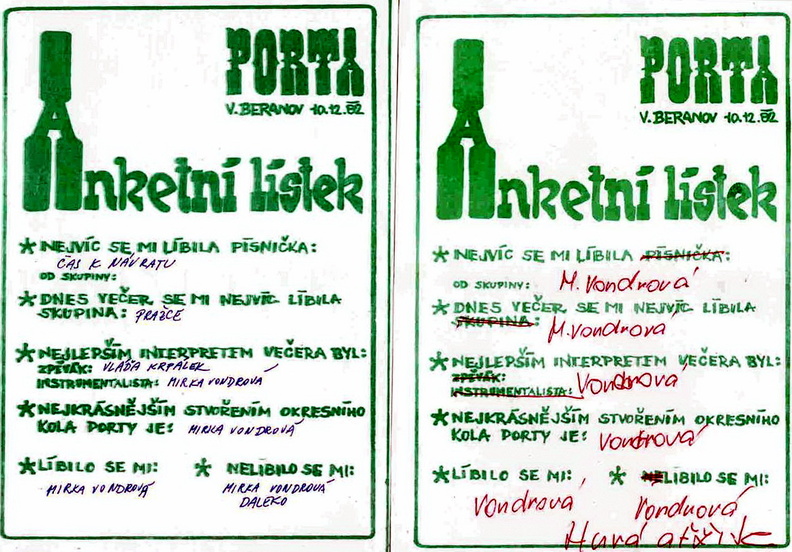 PORTA
V. BERANOV 10.12.82
Anketní lístek
* NEJVÍC SE MI LÍBILA PÍSNIČKA:
ČAS K NÁVRATU
OD SKUPINY:
* DNES VEČER SE MI NEJVÍC LÍBILA
SKUPINA: PRAŽCE
* NEJLEPŠÍM INTERPRETEM VEČERA BYL:
ZPĚVÁK: VLÁĎA KRPÁLEK
INSTRUMENTALISTA: MIRKA VONDROVÁ
* NEJKRÁSNĚJŠÍM STVOŘENÍM OKRESNÍHO
KOLA PORTY JE: MIRKA VONDROVÁ
* LÍBILO SE MI: * NELÍBILO SE MI:
MIRKA VONDROVÁ MIRKA VONDROVÁ
DALEKO
PORTA
V. BERANOV 10.12.82
Anketní lístek
* NEJVÍC SE MI LÍBILA PÍSNIČKA:
OD SKUPINY: M. Vondrová
* DNES VEČER SE MI NEJVÍC LÍBILA
SKUPINA: M. Vondrova
* NEJLEPŠÍM INTERPRETEM VEČERA BYL:
ZPĚVÁK:
INSTRUMENTALISTA: Vondrová
* NEJKRÁSNĚJŠÍM STVOŘENÍM OKRESNÍHO
KOLA PORTY JE: Vondrová
* LÍBILO SE MI: * NELÍBILO SE MI:
Vondrová Vondrová